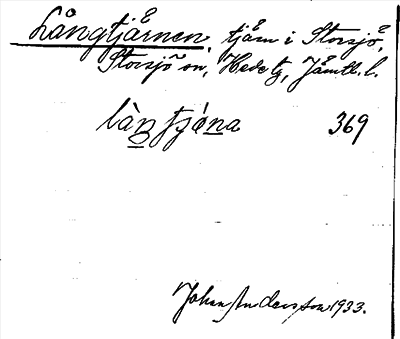 Långtjärnen, tjärn i Storsjö,
Storsjö sn, Hede tg, Jämtl. l.
làŋtjǽna 369
Johan Andersson 1933.